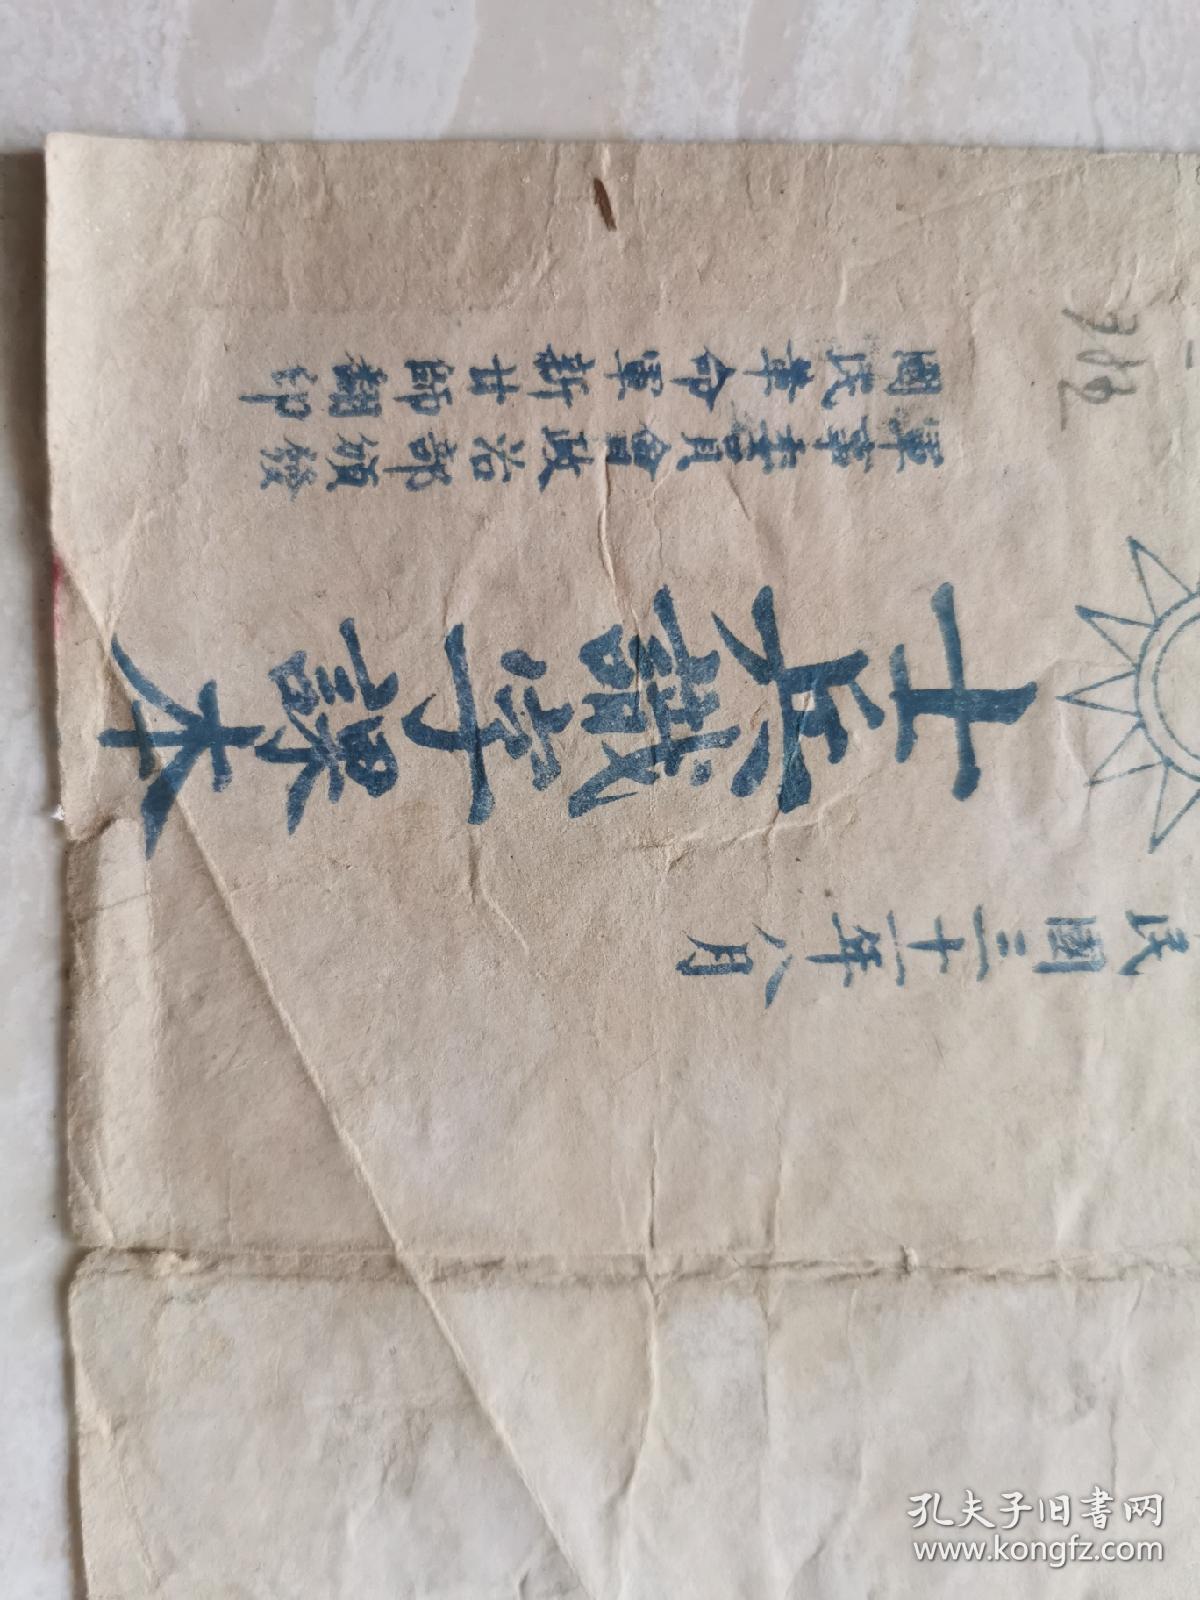 民國三十一年八月
士兵識字課本
軍事委員會政治部頒發
國民革命軍新廿師翻印
孔夫子旧书网
www.kongfz.com